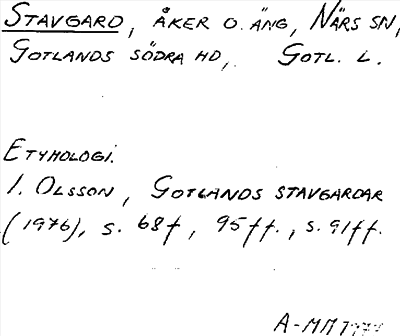 STAVGARD, ÅKER O. ÄNG, NÄRS SN,
GOTLANDS SÖDRA HD, GOTL. L.
ETYMOLOGI.
I. OLSSON, GOTLANDS STAVGARDAR
(1976), s. 68f, 95ff., s. 91ff.
A-MM